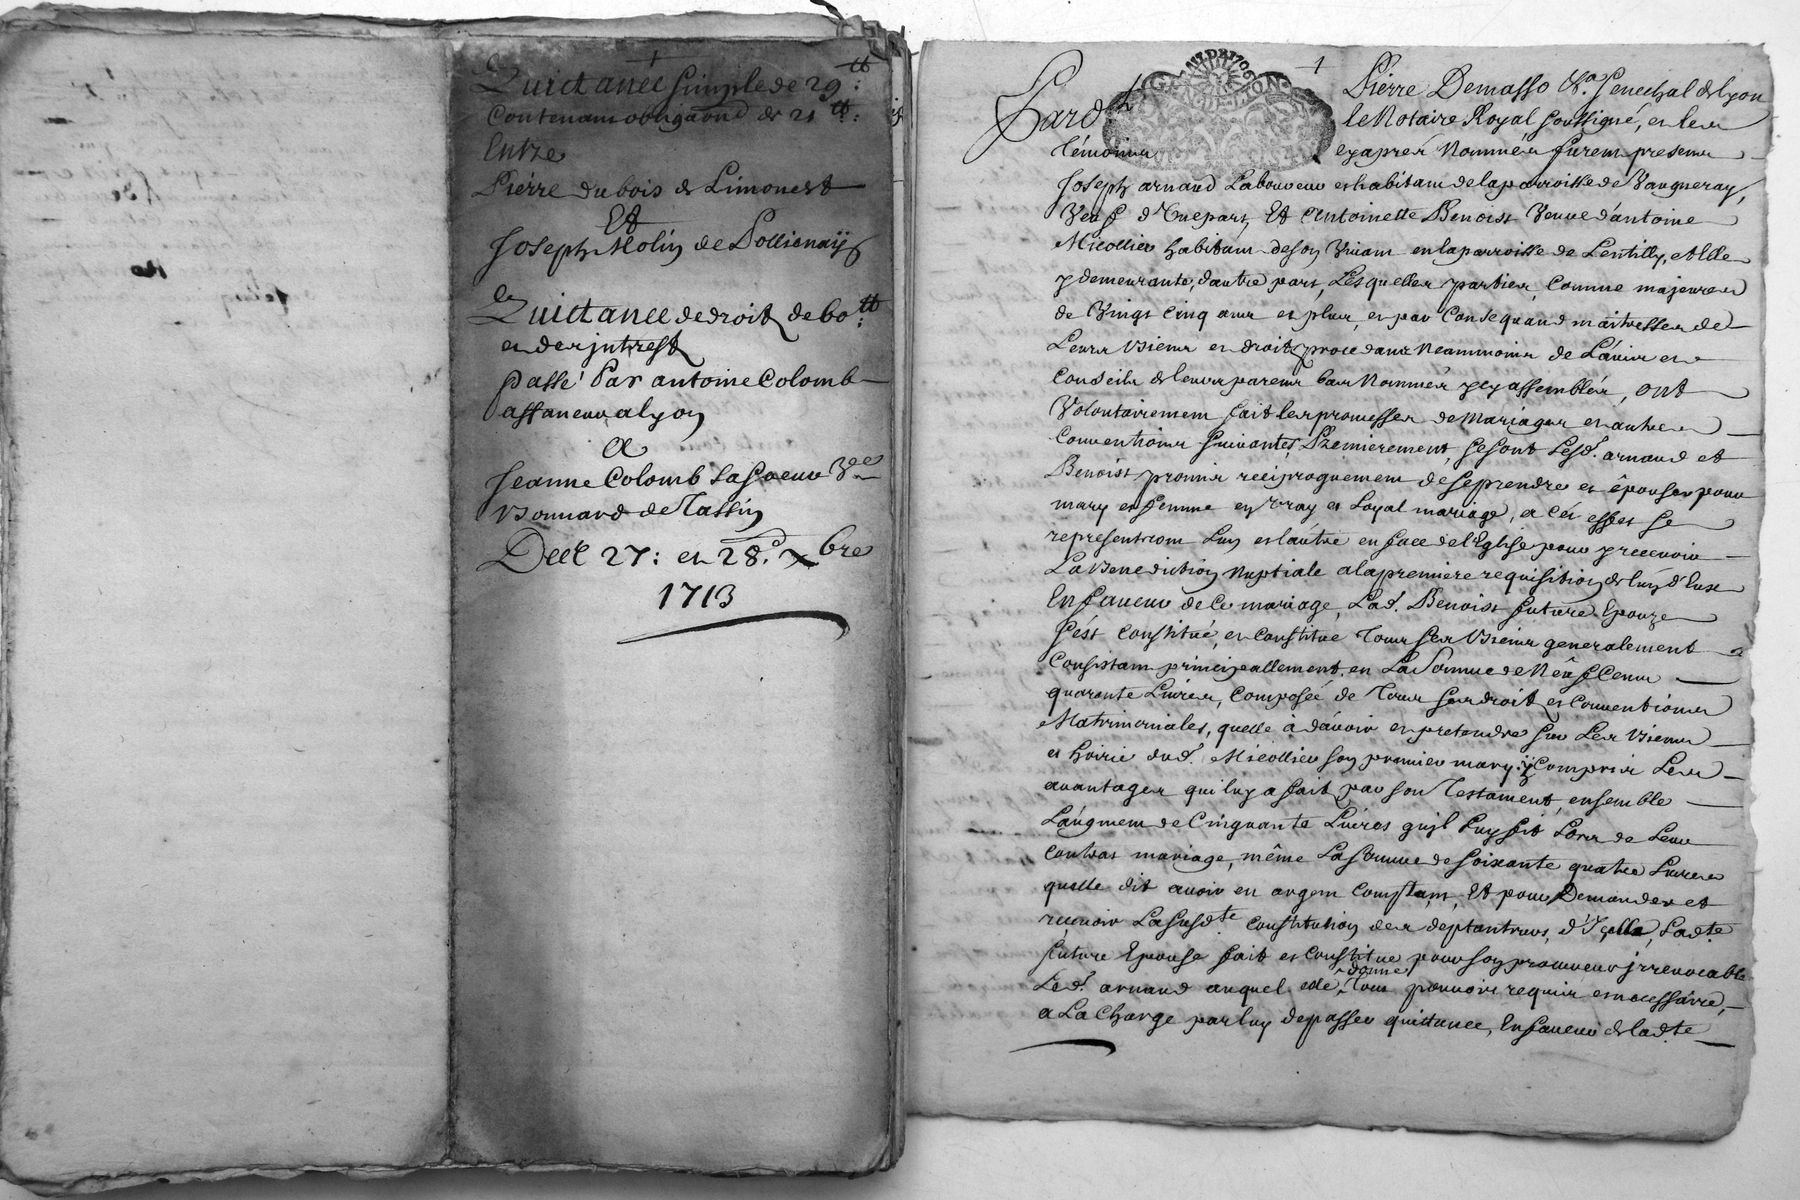 Quictance simple de 29 ₶:
Contenant obligaõnd de 21 ₶:
Entre
Pierre dubois de Limonest
Et
Joseph Molin de Pollienaÿ
Quictance de droit de 60 ₶:
et des jntrest
passé Par antoine Colomb
affaneur a lyon
A
Jeanne Colomb sa soeur Vee
Bonnard de Tassin
Dect 27: et 28e xbre
1713
1
Pardt Pierre Demasso Sr. Senechal de lyon
le Notaire Royal soussigné, et les
Témoins cyaprés Nommés furent presents
Joseph arnaud Laboureur et habitant de la parroisse de Vaugneray,
Veuf d'Une part, Et Antoinette Benoist Veuve d'antoine
Micollier habitant de son Vivant en la parroisse de Lentilly, et Elle
y demeurante, d'autre part, Lesquelles parties, Comme majeures
de Vingt Cinq ans et plus, et par Consequand maitresses de
Leurs Biens et droits, procedant Neammoins de L'avis et
Conseils de leurs parents bas Nommés ycy assemblés, ont
Volontairement fait les promesses de Mariages et autres
Conventions suivantes, Premierement, se sont Lesd. arnaud et
Benoist promis reciproquement de se prendre et épouser pour
mary et femme en Vray et Loyal mariage, et a cét effet se
representront Lun et L'autre en face de l'Eglise pour y recevoir
La Benediction Nuptiale a la premiere requisition de L'un d'Eux
En faveur de Ce mariage, Lad. Benoist future Epouze
s'ést Constitué, et constitue Tous ses Biens generalement
Consistant principallement en La Somme de Neuf Cent
quarante Livres, Composée de Tous ses droit et Conventions
Matrimoniales, quelle à d'avoir et pretendre sur Les Biens
et hoirie dud. Micollier son premier mary, ÿ Compris Les
avantages qui luy a fait par son Testament, ensemble
L'augment de Cinquante Livres qu'jl Luy fit Lors de Leur
contrat mariage, même La Somme de soixante quatre Livres
quelle dit avoir en argent Comptant, Et pour Demander et
recevoir La susdte Constitution des deptanteurs d'Ycelle, Ladte
future Epouse fait et Constitue pour son procureur jrrevocable
Led. arnaud auquel elle donne Tous pouvoirs requis et necessaire,
a La Charge par luy de passer quittance, En faveur de ladte